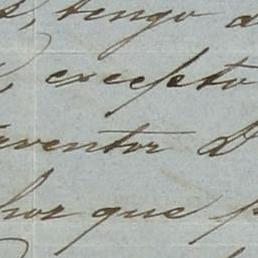 , tengo d
, excepto
ventor D
hor que p